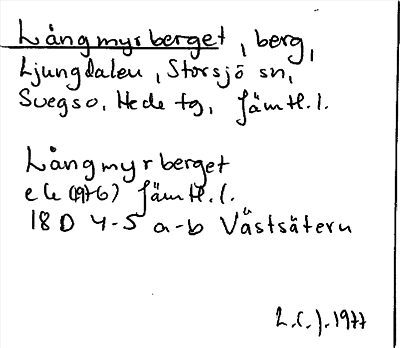 Långmyrberget, berg,
Ljungdalen, Storsjö sn,
Svegs o. Hede tg, Jämtl. l.
Långmyrberget
ek (1976) Jämtl. l.
18 D 4-5 a-b Västsätern
1977